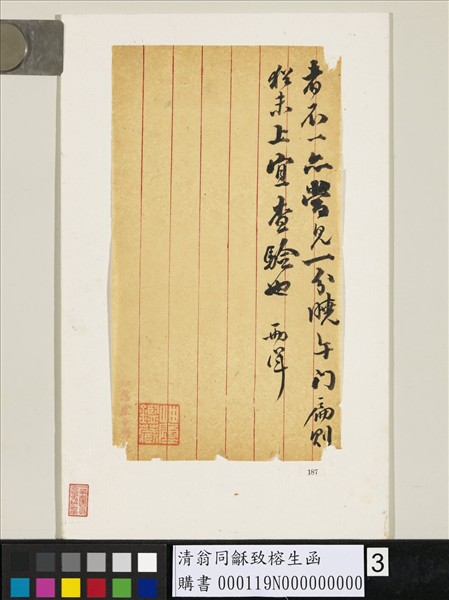 看石一見一分曉午门扁則
猶未上宜查驗也 兩渾
187
清翁同龢致榕生函
購書 000119N000000000
3